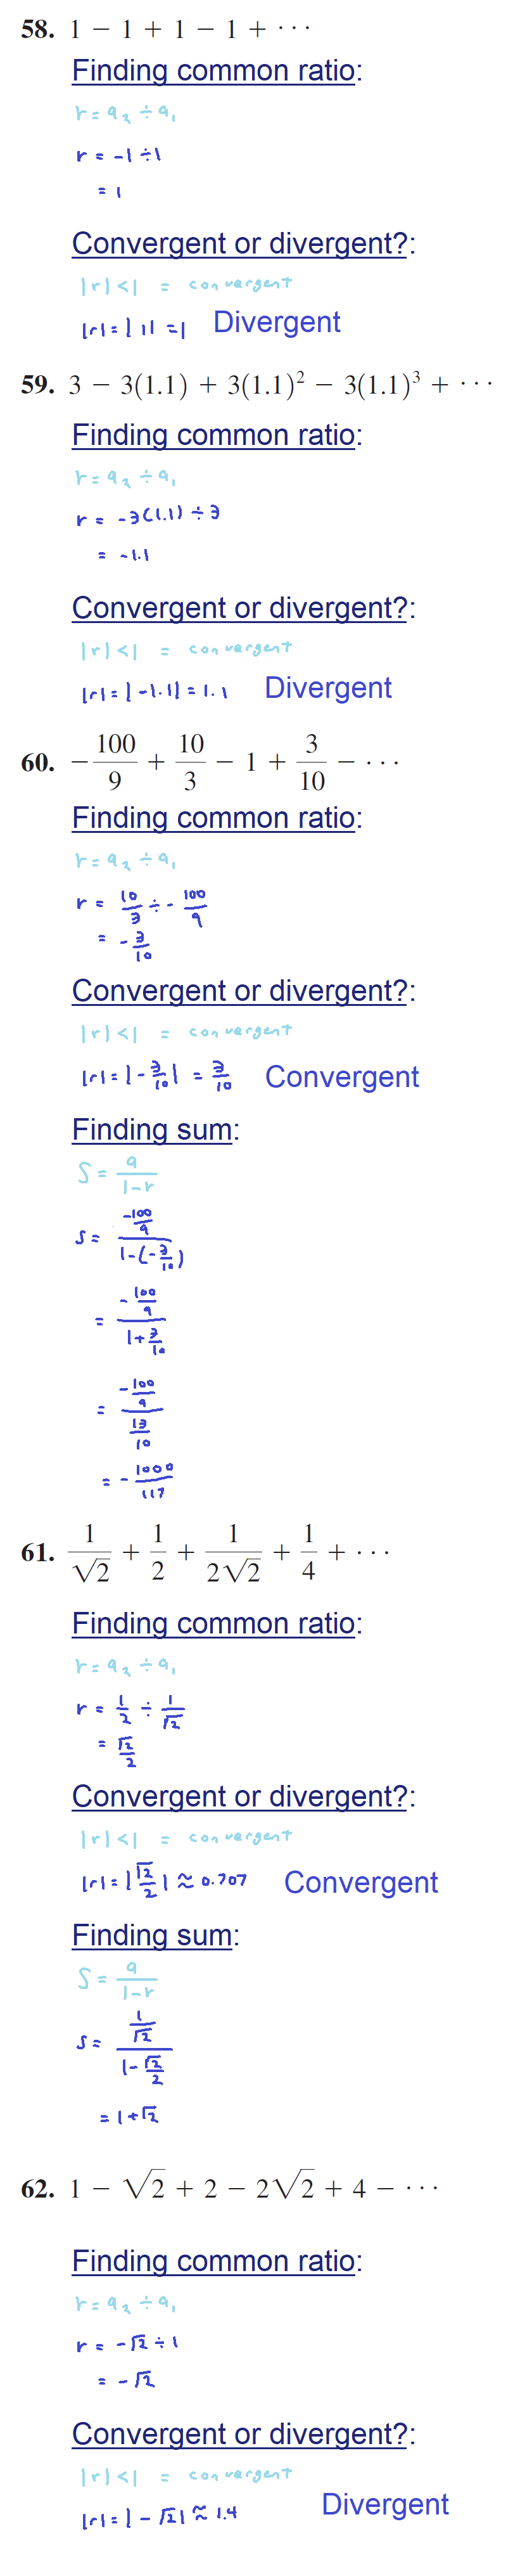 58. 1 − 1 + 1 − 1 + ···
Finding common ratio:
r = a₂ ÷ a₁
r = -1 ÷ 1
= 1
Convergent or divergent?:
|r| < 1 = convergent
|r| = |1| = 1 Divergent
59. 3 − 3(1.1) + 3(1.1)² − 3(1.1)³ + ···
Finding common ratio:
r = a₂ ÷ a₁
r = -3(1.1) ÷ 3
= -1.1
Convergent or divergent?:
|r| < 1 = convergent
|r| = |-1.1| = 1.1 Divergent
60. −100/9 + 10/3 − 1 + 3/10 − ···
Finding common ratio:
r = a₂ ÷ a₁
r = 10/3 ÷ -100/9
= -3/10
Convergent or divergent?:
|r| < 1 = convergent
|r| = |-3/10| = 3/10 Convergent
Finding sum:
S = a/(1-r)
S = (-100/9)/(1-(-3/10))
= (-100/9)/(1+3/10)
= (-100/9)/(13/10)
= -1000/117
61. 1/√2 + 1/2 + 1/(2√2) + 1/4 + ···
Finding common ratio:
r = a₂ ÷ a₁
r = 1/2 ÷ 1/√2
= √2/2
Convergent or divergent?:
|r| < 1 = convergent
|r| = |√2/2| ≈ 0.707 Convergent
Finding sum:
S = a/(1-r)
S = (1/√2)/(1-√2/2)
= 1+√2
62. 1 − √2 + 2 − 2√2 + 4 − ···
Finding common ratio:
r = a₂ ÷ a₁
r = -√2 ÷ 1
= -√2
Convergent or divergent?:
|r| < 1 = convergent
|r| = |-√2| ≈ 1.4 Divergent